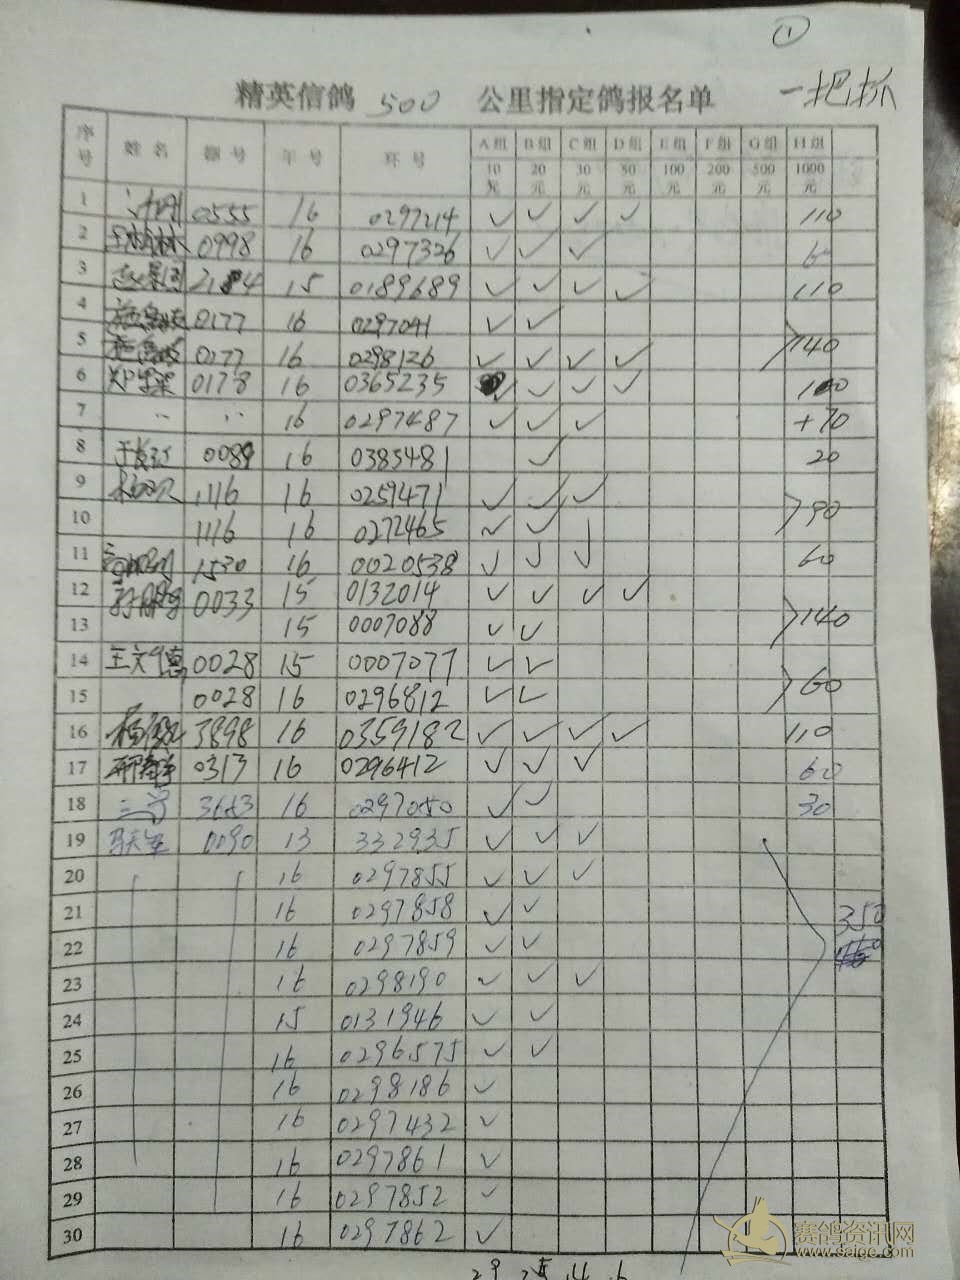 ①
精英信鸽 500 公里指定鸽报名单 一把抓
序号 姓名 棚号 年号 环号 A组 B组 C组 D组 E组 F组 G组 H组
10元 20元 30元 50元 100元 200元 500元 1000元
1 0555 16 0297214 ✓ ✓ ✓ ✓ 110
2 0998 16 0297326 ✓ ✓ ✓
3 15 0189689 ✓ ✓ ✓ ✓ 110
4 0177 16 0297041 ✓ ✓
5 0177 16 0298126 ✓ ✓ ✓ ✓ 140
6 0178 16 0365235 ✓ ✓ ✓ ✓
7 16 0297487 ✓ ✓ ✓ +70
8 0089 16 0385481 ✓ 20
9 1116 16 0259471 ✓ ✓ ✓
10 1116 16 0272465 ✓ ✓ 90
11 1530 16 0020538 ✓ ✓ ✓ 60
12 0033 15 0132014 ✓ ✓ ✓ ✓
13 15 0007088 ✓ ✓ 140
14 王文德 0028 15 0007077 ✓ ✓
15 0028 16 0296812 ✓ ✓ 60
16 3898 16 0359182 ✓ ✓ ✓ ✓ 110
17 0317 16 0296412 ✓ ✓ ✓ 60
18 16 0297050 ✓ ✓ 30
19 0090 13 332935 ✓ ✓ ✓
20 16 0297855 ✓ ✓ ✓
21 16 0297858 ✓ ✓ 350
22 16 0297859 ✓ ✓
23 16 0298190 ✓ ✓ ✓
24 15 0131946 ✓ ✓
25 16 0296575 ✓ ✓
26 16 0298186 ✓
27 16 0297432 ✓
28 16 0297861 ✓
29 16 0297852 ✓
30 16 0297862 ✓
赛鸽资讯网
www.saige.com